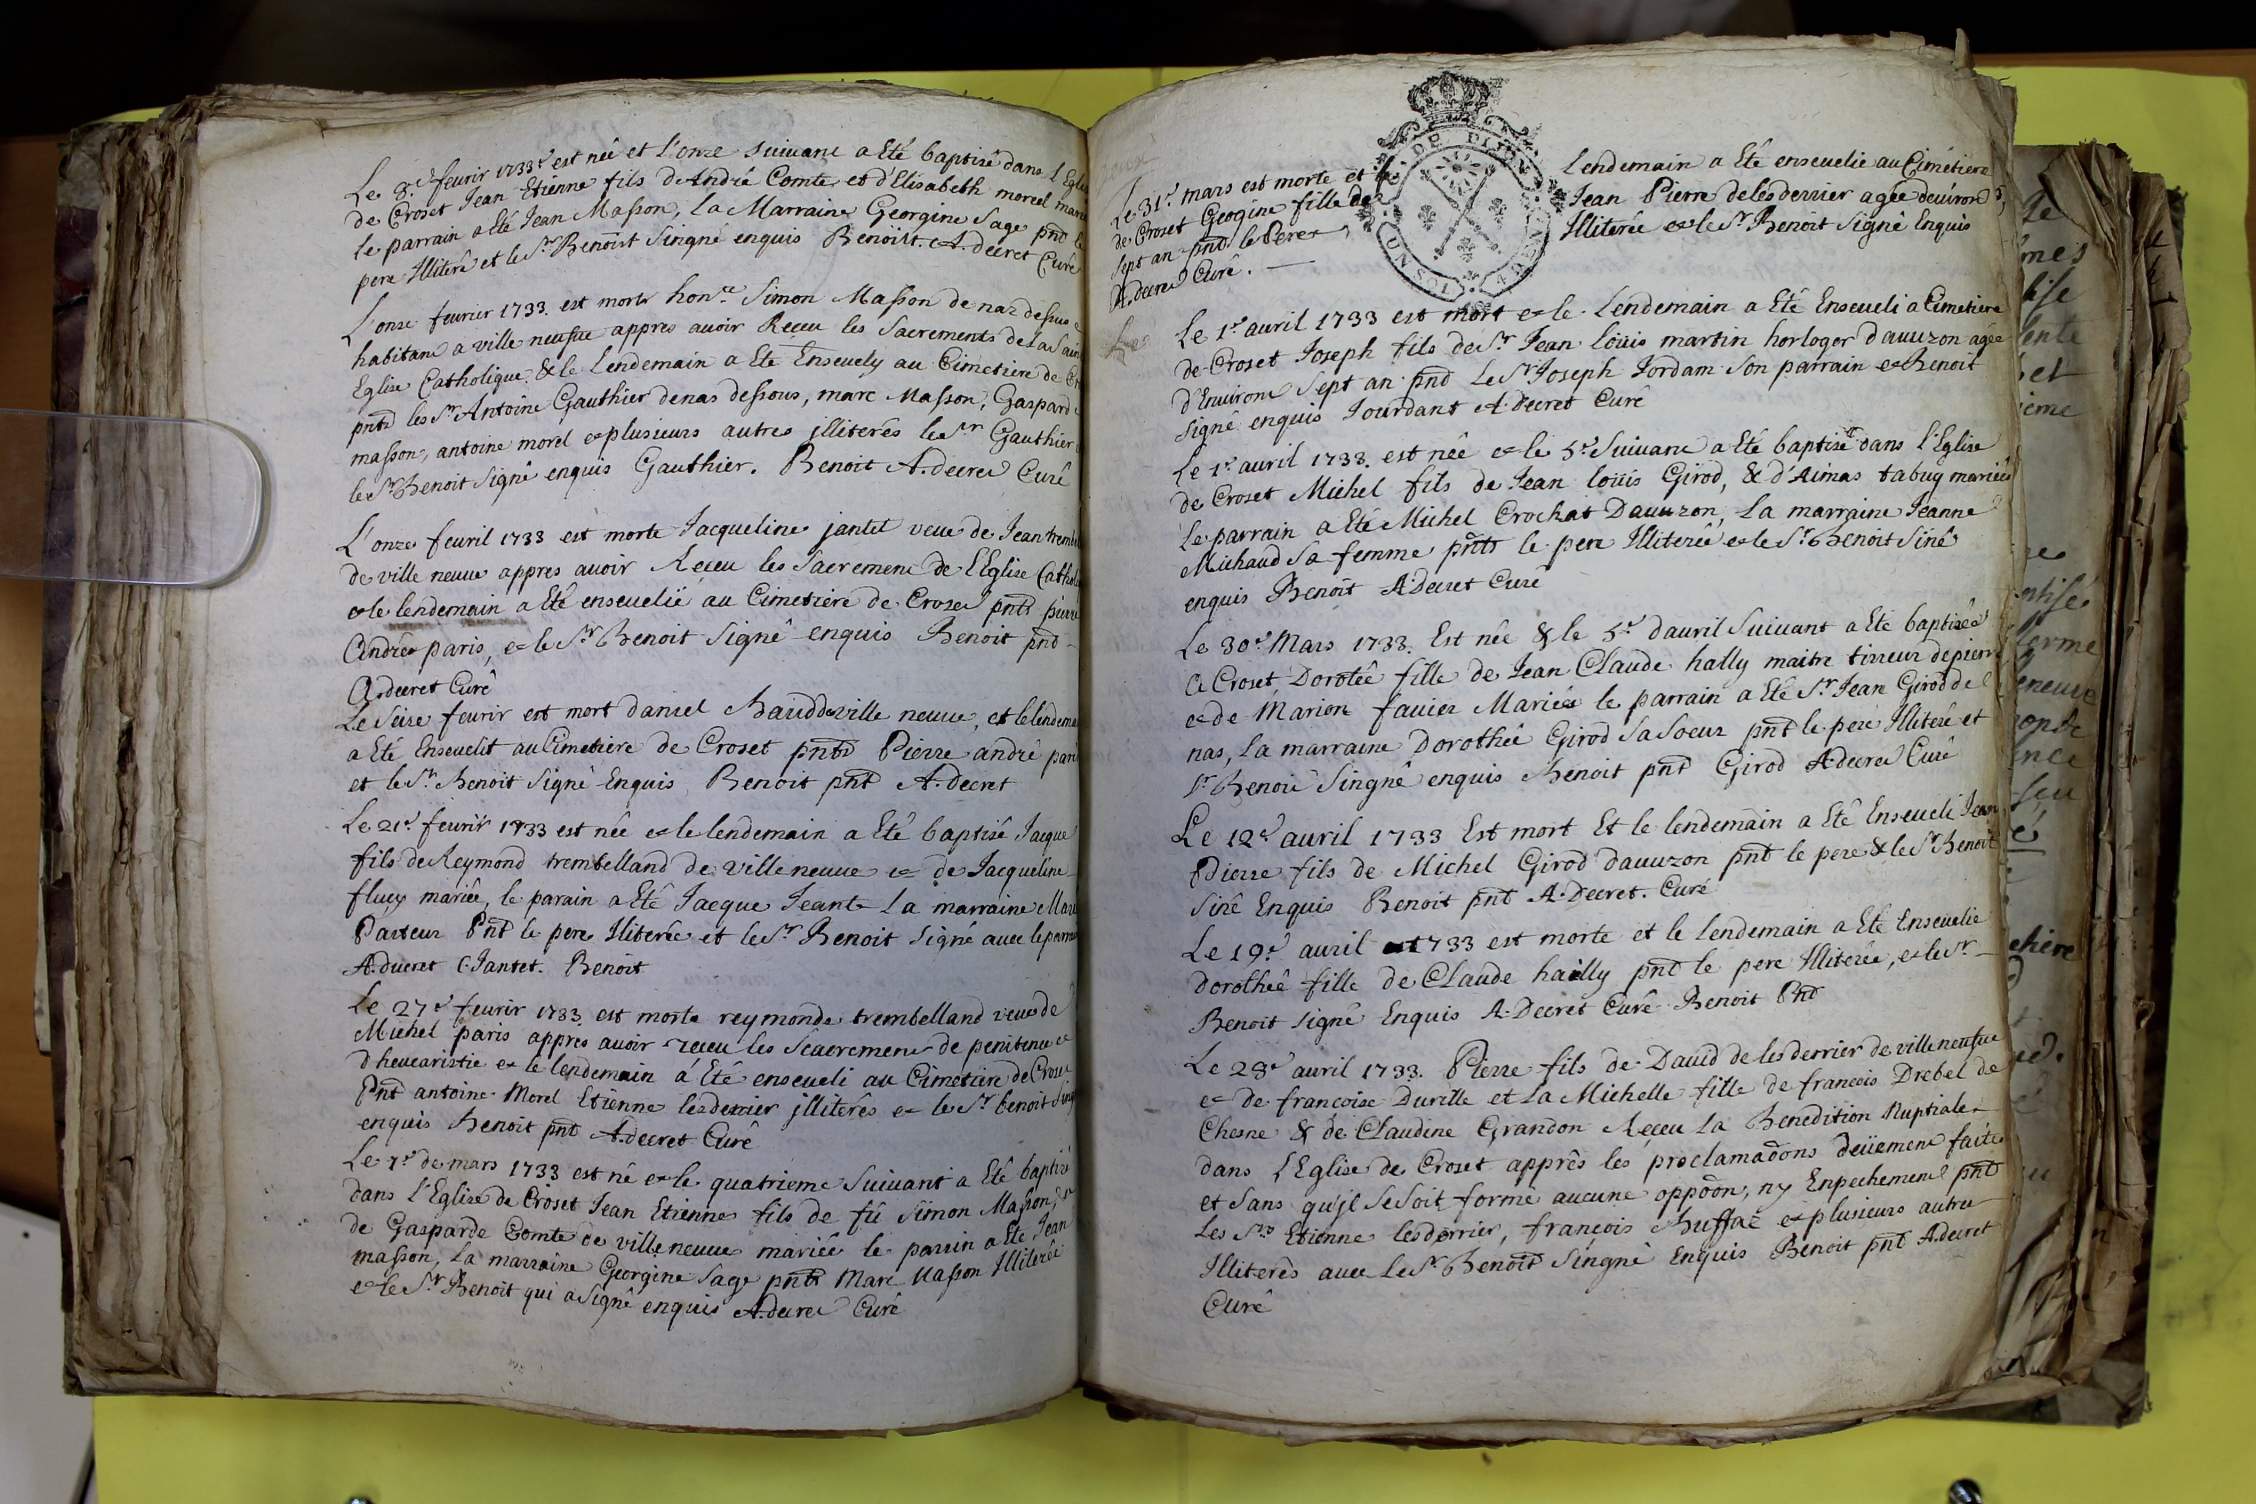 Le 8.e feurir 1733 est née et L'onze suiuant a Eté baptisé dans L'Egli
de Croset Jean Etienne fils de André Comte et d'Elisabeth morel marie
Le parrain a Eté Jean Masson, La Marraine Georgine Sage pnt le
pere Illiteré et le Sr Benoist Singné enquis Benoist. A. decret Curé
L'onze feurier 1733 est morte honble Simon Masson de naz dessus
habitant a ville neufue appres auoir Receu les Sacrements de La Sain
Eglise Catholique, & le Lendemain a Eté Enseuely au Cimetiere de Cr
pnts les Srs Antoine Gauthier de nas dessous, marc Masson, Gaspard
masson, antoine morel et plusieurs autres jlliterés le Sr Gauthier
le Sr Benoit Signé enquis Gauthier. Benoit A. decret Curé
L'onze feuril 1733 est morte Jacqueline jantet veue de Jean trembel
de ville neuue appres auoir Receu les Sacrement de L'Eglise Catholi
et le lendemain a Eté enseuelië au Cimetiere de Croset pnts pierre
André paris, et le Sr Benoit Signé enquis Benoit pnt
A. decret Curé
Le Seize feurir est mort daniel Baud de ville neuue, et le lendema
a Eté Enseuelit au Cimetiere de Croset pnts Pierre andré pari
et le Sr Benoit Signé Enquis Benoit pnt A. decret
Le 21e feurir 1733 est née et le lendemain a Eté baptisé Jacque
fils de Reymond trembelland de ville neuue et de Jacqueline
fluey mariée, le parain a Eté Jacque Jeant La marraine Marie
Pasteur Pnt le pere Iliterée et le Sr Benoit Signé auec le parrain
A. ducret C. Jantet. Benoit
Le 27e feurir 1733 est morte reymonde trembelland veue de
Michel paris appres auoir receu les Séacrement de penitence et
d'heucaristie et le lendemain á Eté enseueli au Cimetiere de Croset
Pnt antoine Morel Etienne lesderrier jlliterés et le Sr benoit Sing
enquis Benoit pnt A. decret Curé
Le 1er de mars 1733 est né et le quatrieme Suiuant a Eté baptisé
dans l'Eglise de Croset Jean Etienne fils de fû Simon Masson, et
de Gasparde Comte de ville neuue mariée le parrin a Eté Jean
masson, La marraine Georgine Sage pnts Marc Masson Illiteré
et le Sr Benoit qui a Signé enquis A. decret Curé
Le 31e mars est morte et le
de Croset Georgine fille de
Sept an pnt le Pere
A. decret Curé.
DE DIJON
UN SOL 4 DEN
Lendemain a Eté enseuelie au Cimétiere
Jean Pierre de lesderrier agée deuiron
Illiterée et le Sr Benoit Signé Enquis
Le 1er auril 1733 est mort et le Lendemain a Eté Enseueli a Cimetiere
de Croset Joseph fils de Sr Jean loüis martin horloger d'auuzon agée
d'Enuiron Sept an pnt Le Sr Joseph Jordam Son parrain et Benoit
Signé enquis Jourdant A. decret Curé
Le 1er auril 1733. est née et le 5e Suiuant a Eté baptisé dans l'Eglise
de Croset Michel fils de Jean loüis Girod, & d'Aimas tabuy mariée
Le parrain a Eté Michel Crochat Dauuzon, La marraine Jeanne
Michaud Sa femme pnts le pere Illiterée et le Sr Benoit Siné
enquis Benoit A. Decret Curé
Le 30e Mars 1733. Est née & le 5e d'auril Suiuant a Eté baptisée
a Croset Dorotée fille de Jean Claude hally maitre tirreur de pierre
et de Marion fauier Mariée le parrain a Eté Sr Jean Girod de
nas, La marraine Dorothée Girod Sa Soeur pnt le pere Illiteré et
Sr Benoit Singné enquis Benoit pnt Girod A. decret Curé
Le 12e auril 1733 Est mort Et le lendemain a Eté Enseueli Jean
Pierre fils de Michel Girod d'auuzon pnt le pere & le Sr Benoit
Siné Enquis Benoit pnt A. Decret. Curé
Le 19e auril 1733 est morte et le lendemain a Eté Enseuelie
dorothée fille de Claude hailly pnt le pere Illiterée, et le Sr
Benoit Signé Enquis A. Decret Curé Benoit Pnt
Le 28e auril 1733. Pierre fils de Dauid de lesderrier de ville neufue
et de francoise Duville et La Michelle fille de francois Drebel de
Chesne & de Claudine Grandon Receu La Benedition Nuptiale
dans l'Eglise de Croset apprês les proclamaõons deüement faite
et Sans qu'jl Se Soit formé aucune oppoõn, ny Enpechement pnt
Les Srs Etienne lesderrier, francois Buffaz et plusieurs autre
Illiterés auec Le Sr Benoit Singné Enquis Benoit pnt A. decret
Curé